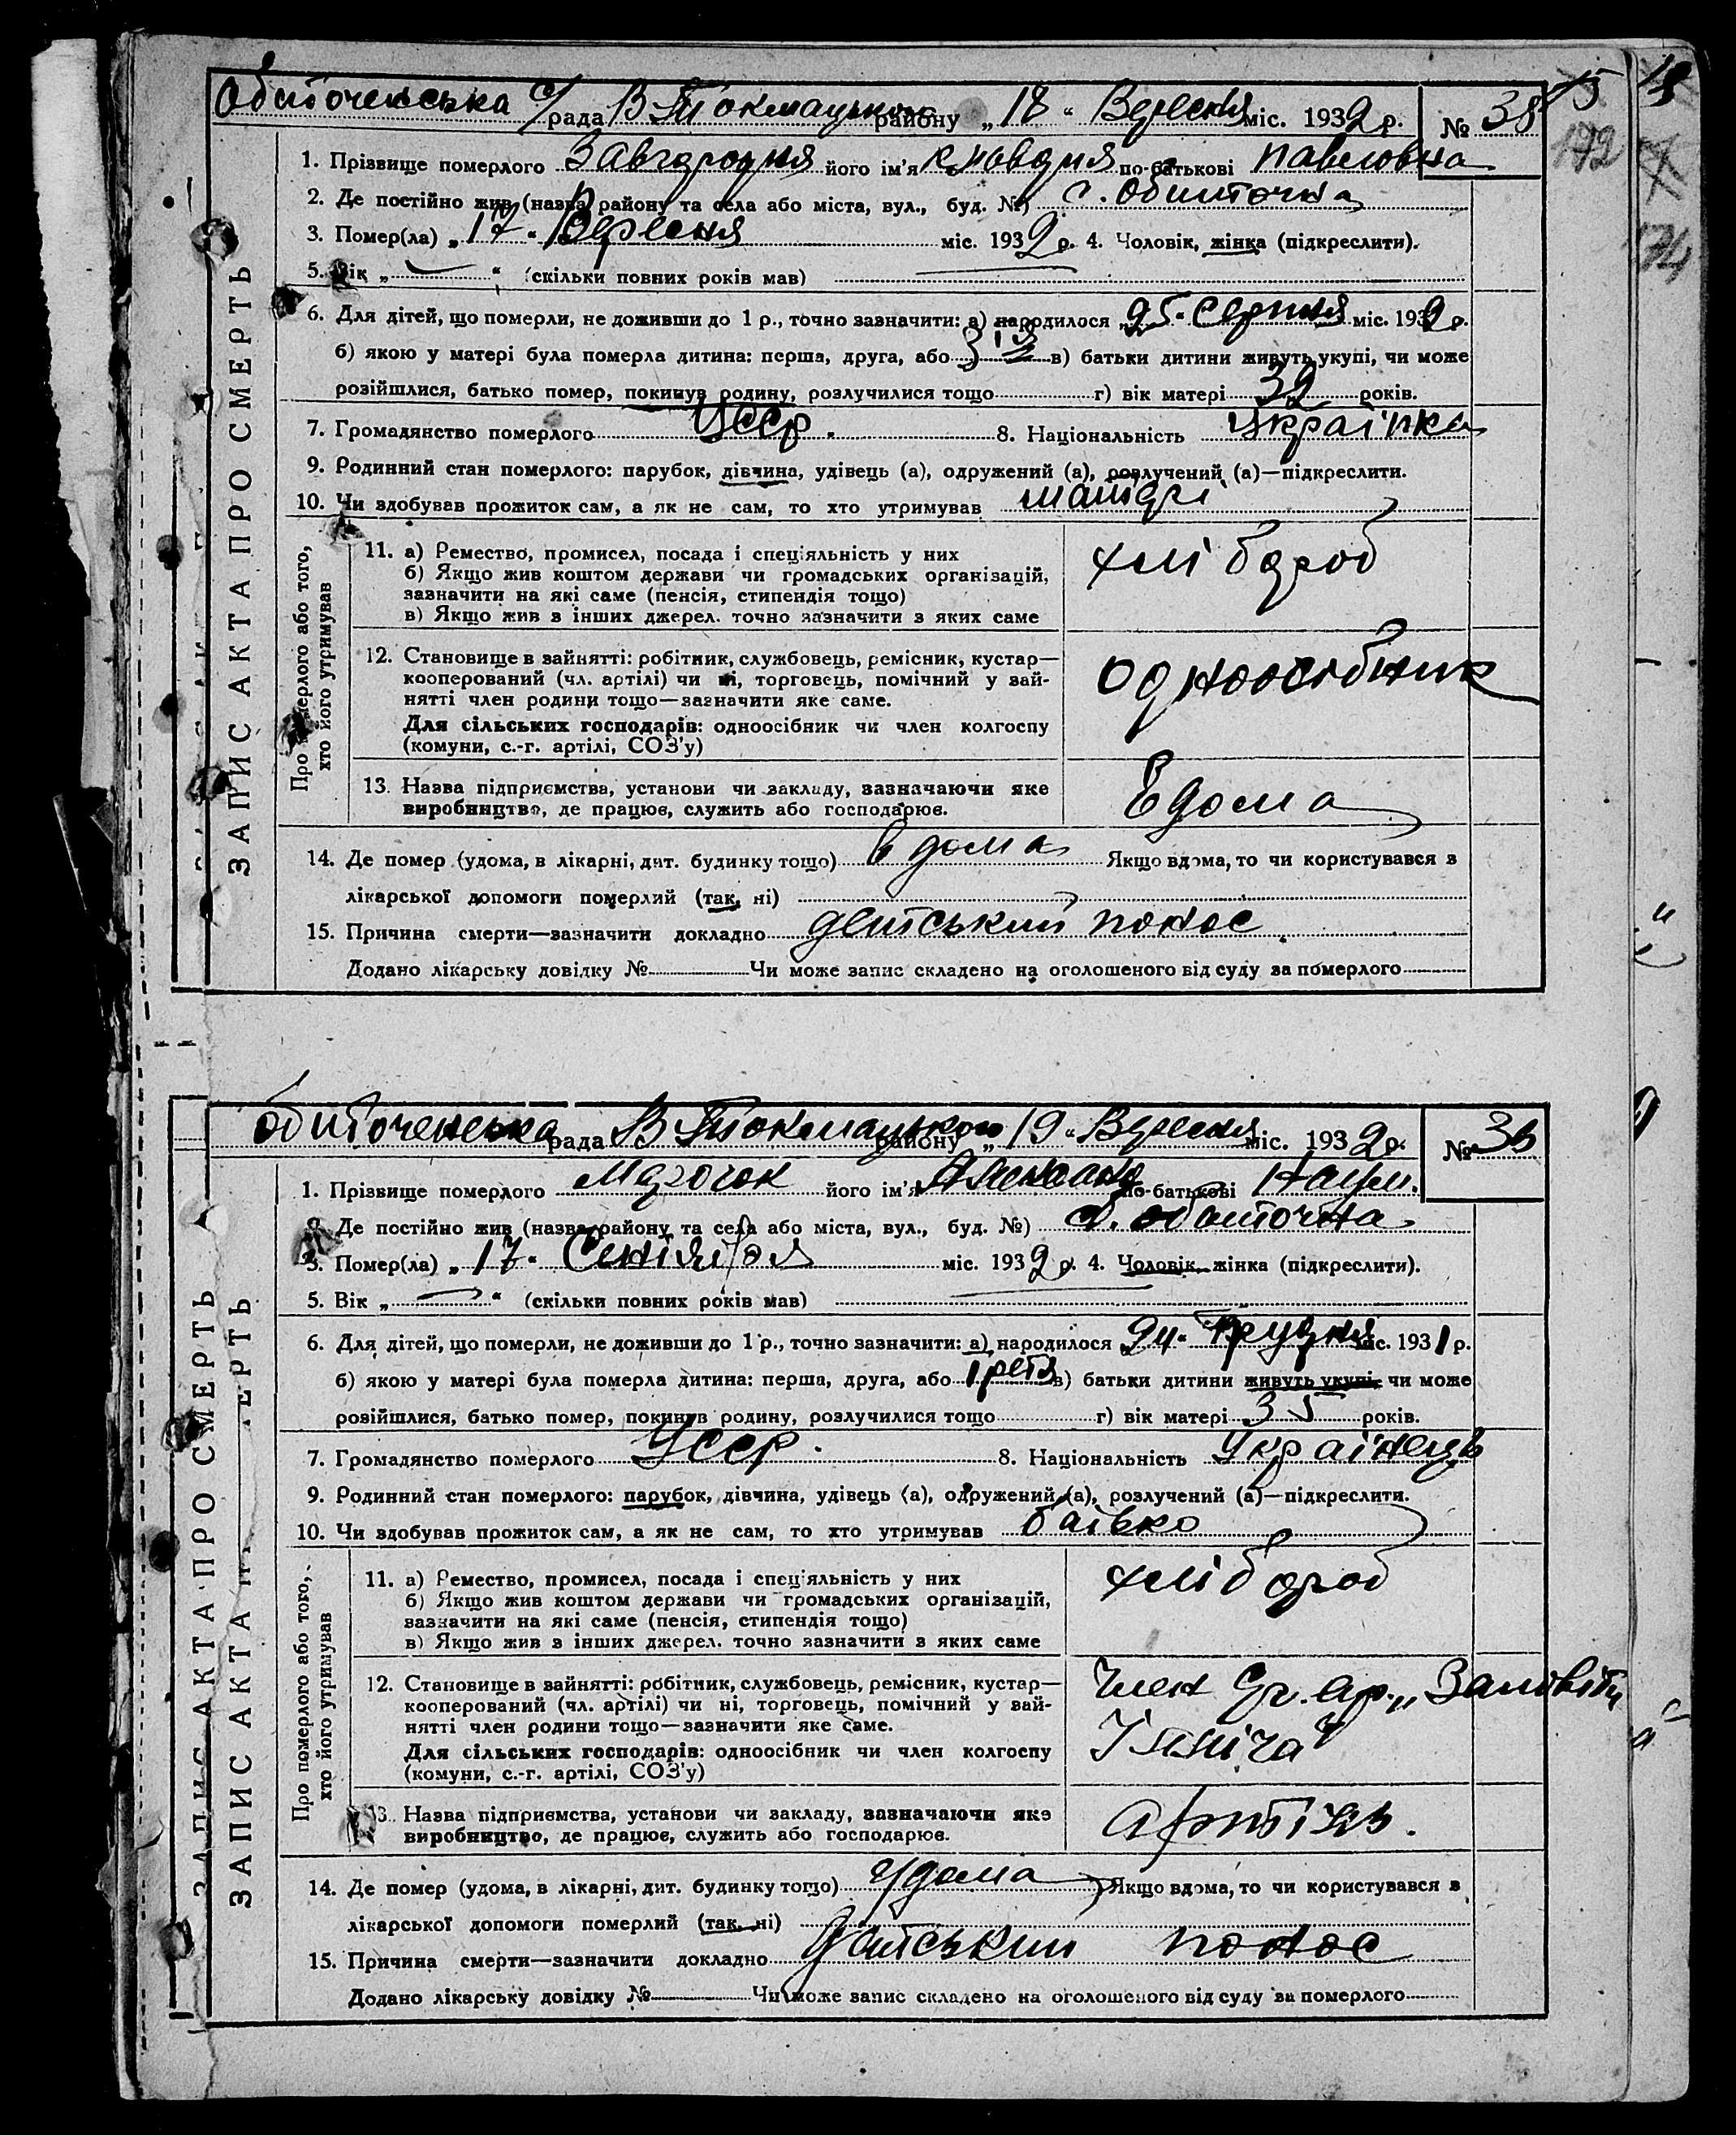 Обиточенська с/рада В Токмацького району „18“ Вересня міс. 1932 р. № 38
15
172
1. Прізвище померлого Завгородня його ім'я Клавдия по-батькові Павловна
2. Де постійно жив (назва району та села або міста, вул., буд. №) с. Обиточна
3. Помер(ла) „17“ Вересня міс. 1932 р. 4. Чоловік, жінка (підкреслити).
5. Вік „ “ (скільки повних років мав)
6. Для дітей, що померли, не доживши до 1 р., точно зазначити: а) народилося „25“ Серпня міс. 1932 р.
б) якою у матері була померла дитина: перша, друга, або в) батьки дитини живуть укупі, чи може
розійшлися, батько помер, покинув родину, розлучилися тощо г) вік матері 32 років.
7. Громадянство померлого УССР. 8. Національність Українка
9. Родинний стан померлого: парубок, дівчина, удівець (а), одружений (а), розлучений (а)—підкреслити.
10. Чи здобував прожиток сам, а як не сам, то хто утримував матері
ЗАПИС АКТА ПРО СМЕРТЬ
Про померлого або того, хто його утримував
11. а) Ремество, промисел, посада і спеціяльність у них
б) Якщо жив коштом держави чи громадських організацій,
зазначити на які саме (пенсія, стипендія тощо)
в) Якщо жив з інших джерел. точно зазначити з яких саме
хлібороб
12. Становище в зайнятті: робітник, службовець, ремісник, кустар—
кооперований (чл. артілі) чи ні, торговець, помічний у зай-
нятті член родини тощо—зазначити яке саме.
Для сільських господарів: одноосібник чи член колгоспу
(комуни, с.-г. артілі, СОЗ'у)
одноосібник
13. Назва підприємства, установи чи закладу, зазначаючи яке
виробництво, де працює, служить або господарює.
Вдома
14. Де помер (удома, в лікарні, дит. будинку тощо) вдома Якщо вдома, то чи користувався з
лікарської допомоги померлий (так, ні)
15. Причина смерти—зазначити докладно детський понос.
Додано лікарську довідку № Чи може запис складено на оголошеного від суду за померлого
Обиточенська рада В Токмацького району „19“ Вересня міс. 1932 р. № 39
1. Прізвище померлого його ім'я по-батькові Наум.
2. Де постійно жив (назва району та села або міста, вул., буд. №) с. Обиточна
3. Помер(ла) „17“ Сентября міс. 1932 р. 4. Чоловік, жінка (підкреслити).
5. Вік „ “ (скільки повних років мав)
6. Для дітей, що померли, не доживши до 1 р., точно зазначити: а) народилося „24“ Грудня міс. 1931 р.
б) якою у матері була померла дитина: перша, друга, або в) батьки дитини живуть укупі, чи може
розійшлися, батько помер, покинув родину, розлучилися тощо г) вік матері 35 років.
7. Громадянство померлого УССР. 8. Національність Українець
9. Родинний стан померлого: парубок, дівчина, удівець (а), одружений (а), розлучений (а)—підкреслити.
10. Чи здобував прожиток сам, а як не сам, то хто утримував батько
ЗАПИС АКТА ПРО СМЕРТЬ
Про померлого або того, хто його утримував
11. а) Ремество, промисел, посада і спеціяльність у них
б) Якщо жив коштом держави чи громадських організацій,
зазначити на які саме (пенсія, стипендія тощо)
в) Якщо жив з інших джерел. точно зазначити з яких саме
хлібороб
12. Становище в зайнятті: робітник, службовець, ремісник, кустар—
кооперований (чл. артілі) чи ні, торговець, помічний у зай-
нятті член родини тощо—зазначити яке саме.
Для сільських господарів: одноосібник чи член колгоспу
(комуни, с.-г. артілі, СОЗ'у)
член с.г. ар. „Заповіти
Ілліча“
13. Назва підприємства, установи чи закладу, зазначаючи яке
виробництво, де працює, служить або господарює.
артіль.
14. Де помер (удома, в лікарні, дит. будинку тощо) удома Якщо вдома, то чи користувався з
лікарської допомоги померлий (так, ні)
15. Причина смерти—зазначити докладно детський понос
Додано лікарську довідку № Чи може запис складено на оголошеного від суду за померлого